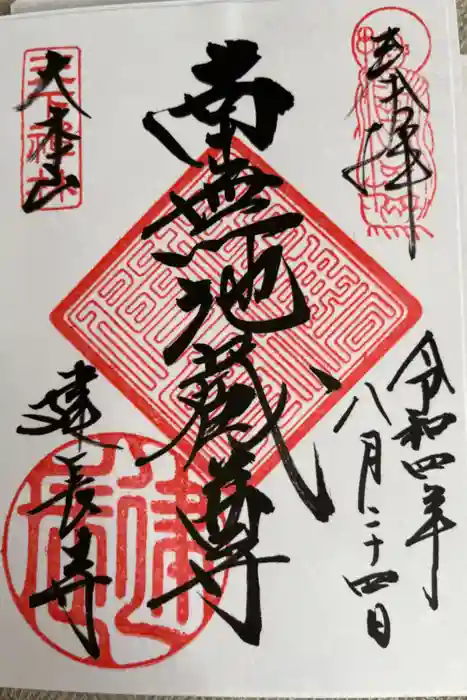 奉拝
令和四年
八月二十四日
南無地蔵尊
大本山
建長寺